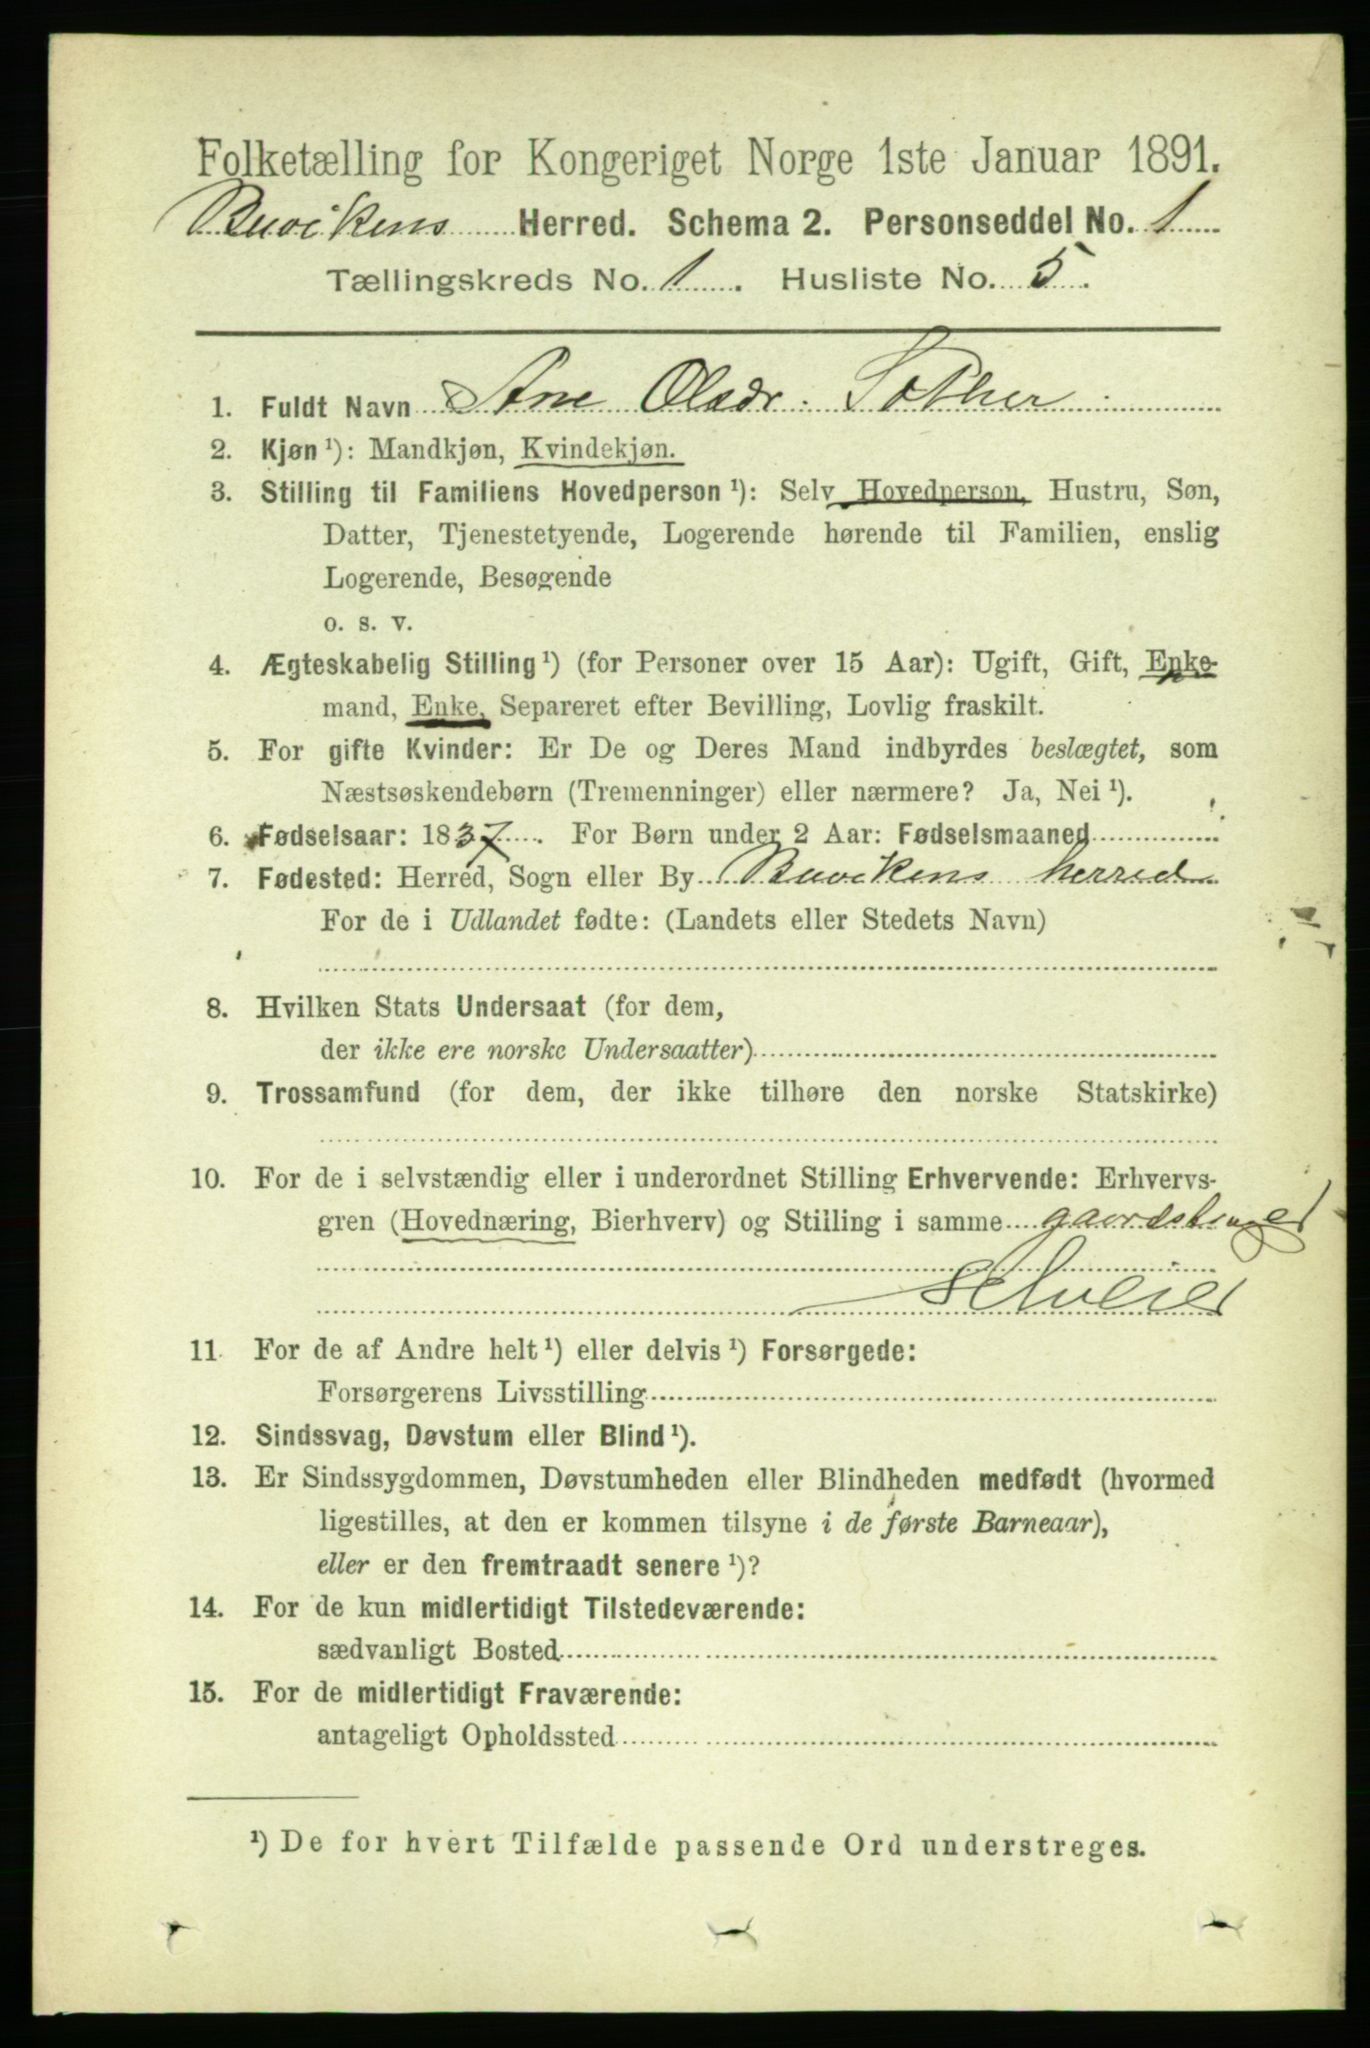 Folketælling for Kongeriget Norge 1ste Januar 1891.
Buvikens Herred. Schema 2. Personseddel No. 1
Tællingskreds No. 1. Husliste No. 5.
1. Fuldt Navn Ane Olsdr.
2. Kjøn ¹): Mandkjøn, Kvindekjøn.
3. Stilling til Familiens Hovedperson ¹): Selv Hovedperson, Hustru, Søn,
Datter, Tjenestetyende, Logerende hørende til Familien, enslig
Logerende, Besøgende
o. s. v.
4. Ægteskabelig Stilling ¹) (for Personer over 15 Aar): Ugift, Gift, Enke-
mand, Enke, Separeret efter Bevilling, Lovlig fraskilt.
5. For gifte Kvinder: Er De og Deres Mand indbyrdes beslægtet, som
Næstsøskendebørn (Tremenninger) eller nærmere? Ja, Nei ¹).
6. Fødselsaar: 1837. For Børn under 2 Aar: Fødselsmaaned
7. Fødested: Herred, Sogn eller By Buvikens herred
For de i Udlandet fødte: (Landets eller Stedets Navn)
8. Hvilken Stats Undersaat (for dem,
der ikke ere norske Undersaatter)
9. Trossamfund (for dem, der ikke tilhøre den norske Statskirke)
10. For de i selvstændig eller i underordnet Stilling Erhvervende: Erhvervs-
gren (Hovednæring, Bierhverv) og Stilling i samme gaardbruger
Selveier
11. For de af Andre helt ¹) eller delvis ¹) Forsørgede:
Forsørgerens Livsstilling
12. Sindssvag, Døvstum eller Blind ¹).
13. Er Sindssygdommen, Døvstumheden eller Blindheden medfødt (hvormed
ligestilles, at den er kommen tilsyne i de første Barneaar),
eller er den fremtraadt senere ¹)?
14. For de kun midlertidigt Tilstedeværende:
sædvanligt Bosted
15. For de midlertidigt Fraværende:
antageligt Opholdssted
¹) De for hvert Tilfælde passende Ord understreges.